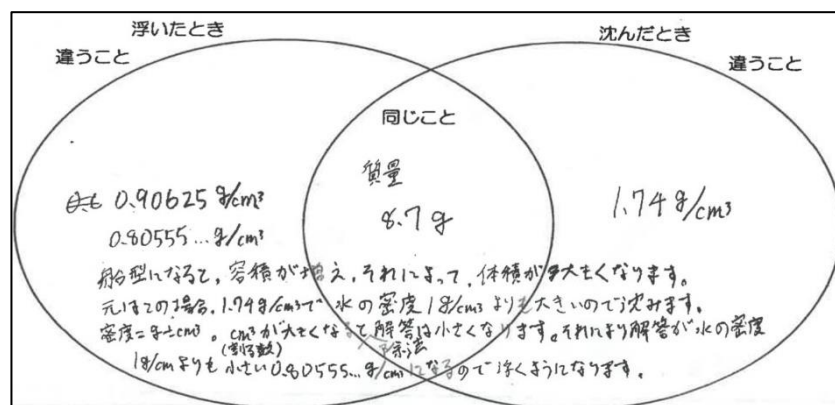 浮いたとき
沈んだとき
違うこと
違うこと
同じこと
質量
0.90625 g/cm³
8.7g
1.74 g/cm³
0.80555... g/cm³
船型になると、容積が増え、それによって、体積が大きくなります。
元はこの場合、1.74g/cm³で水の密度1g/cm³よりも大きいので沈みます。
密度=g÷cm³。cm³が大きくなると解答は小さくなります。それにより解答が水の密度
(割る数)
除法
1g/cmよりも小さい0.80555...g/cm³になるので浮くようになります。